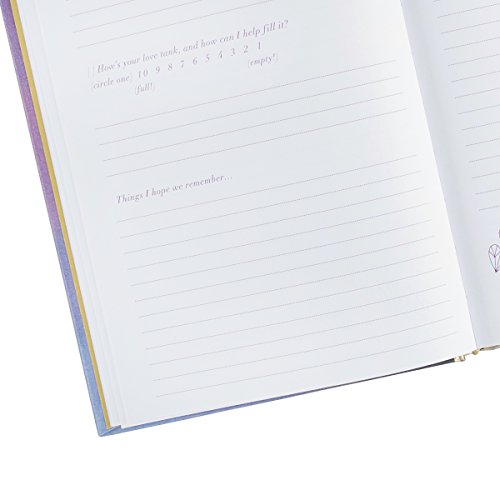 [ ] How's your love tank, and how can I help fill it?
(circle one) 10 9 8 7 6 5 4 3 2 1
(full!) (empty!)
Things I hope we remember...